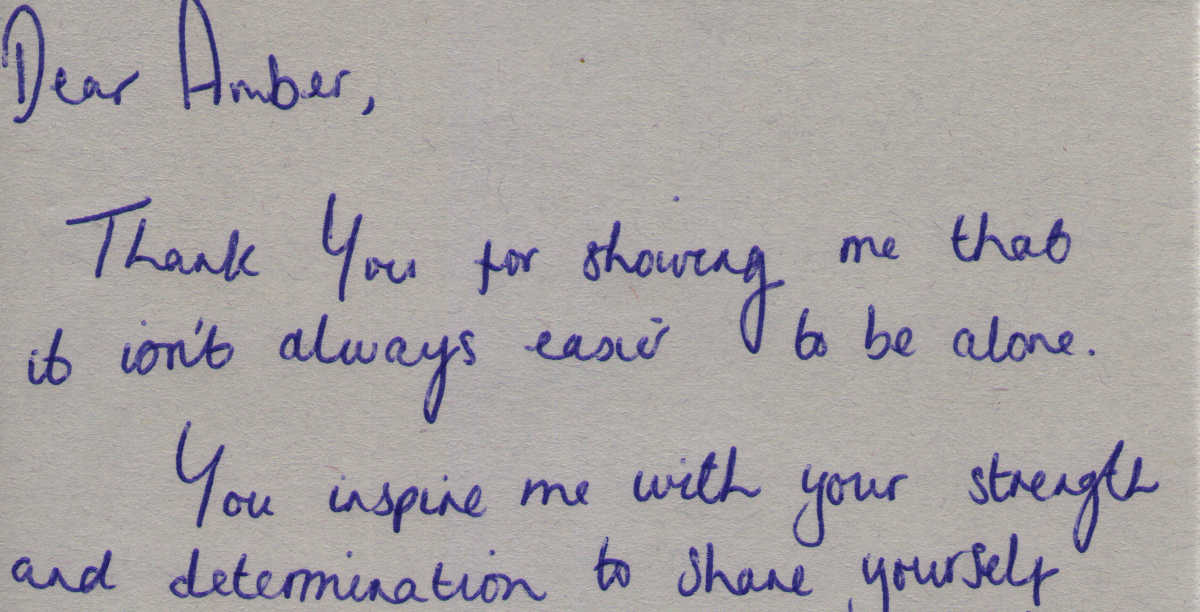 Dear Amber,
Thank You for showing me that
it isn't always easier to be alone.
You inspire me with your strength
and determination to share yourself